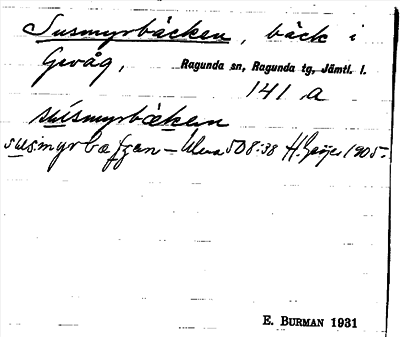 Susmyrbäcken, bäck i
Gevåg, Ragunda sn, Ragunda tg, Jämtl. l.
141 a
susmyrbäken
susmyrbæ — 508:38 H. Geijer 1905.
E. BURMAN 1931